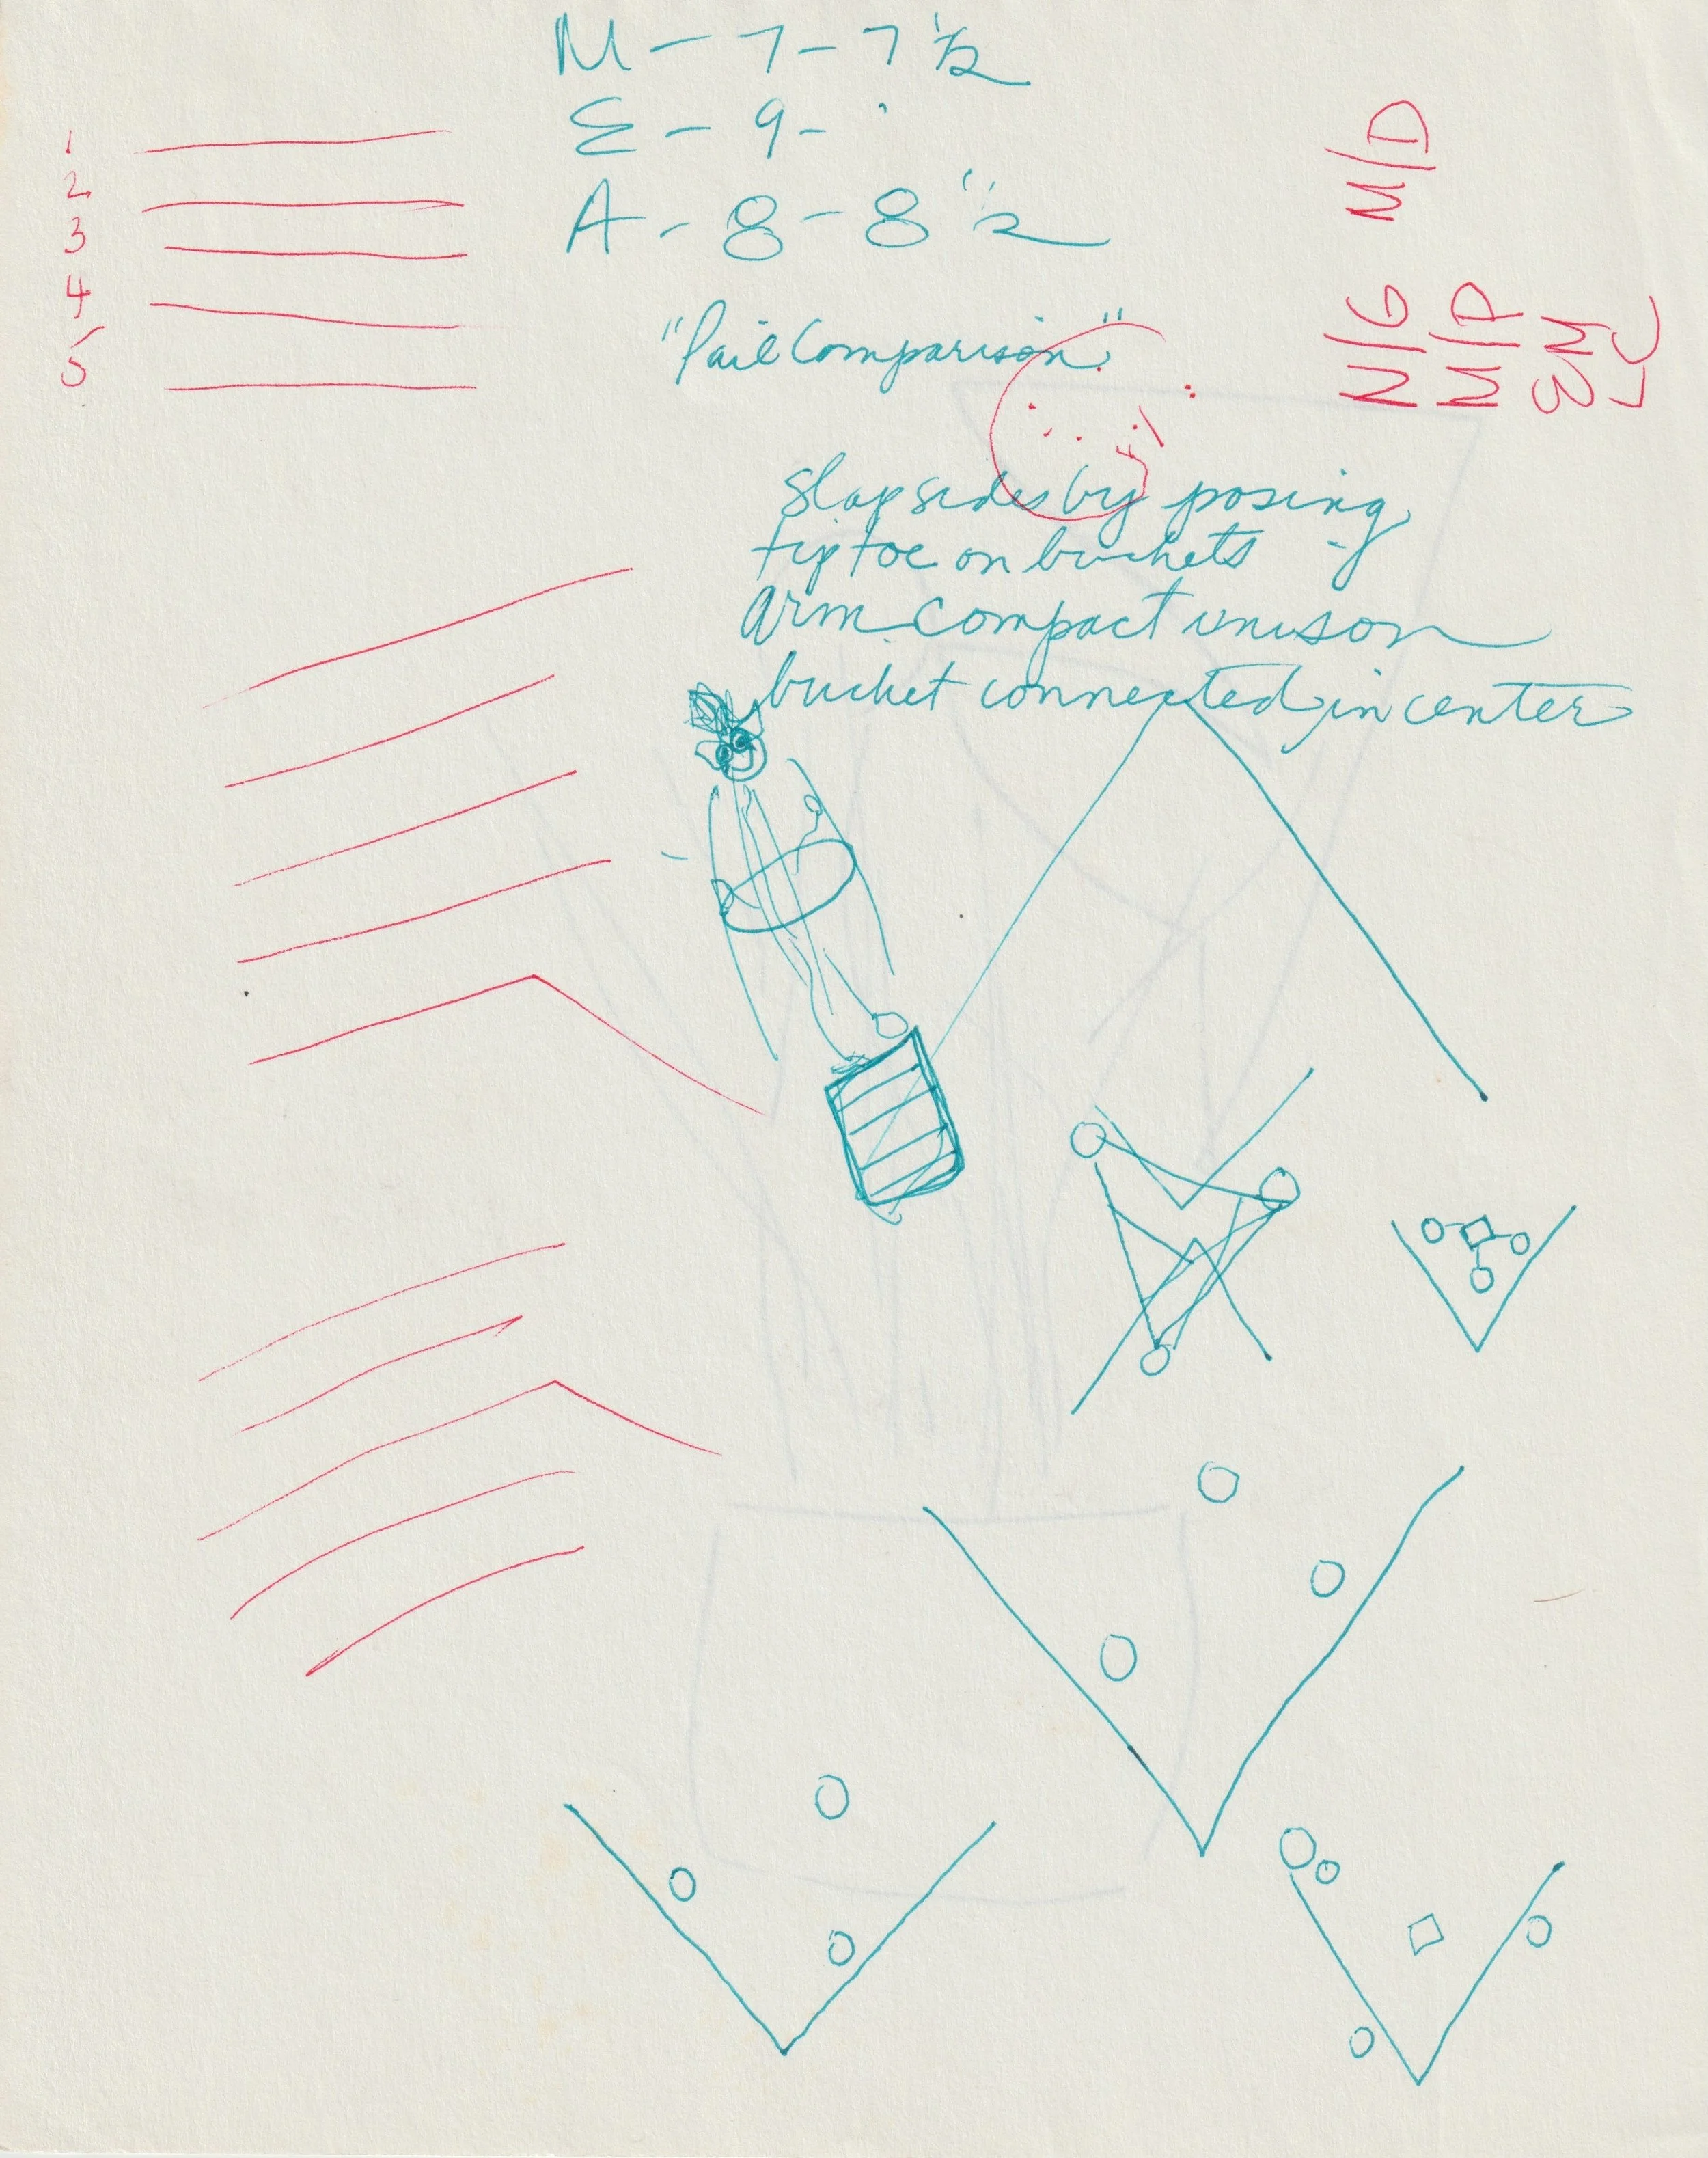 M - 7 - 7 1/2
E - 9 -
A - 8 - 8 1/2
1
2
3
4
5
M/D
N/G
M/P
EM
LC
"Pail Comparison"
slap sides by posing
tip toe on buckets -
arm compact unison
bucket connected in center